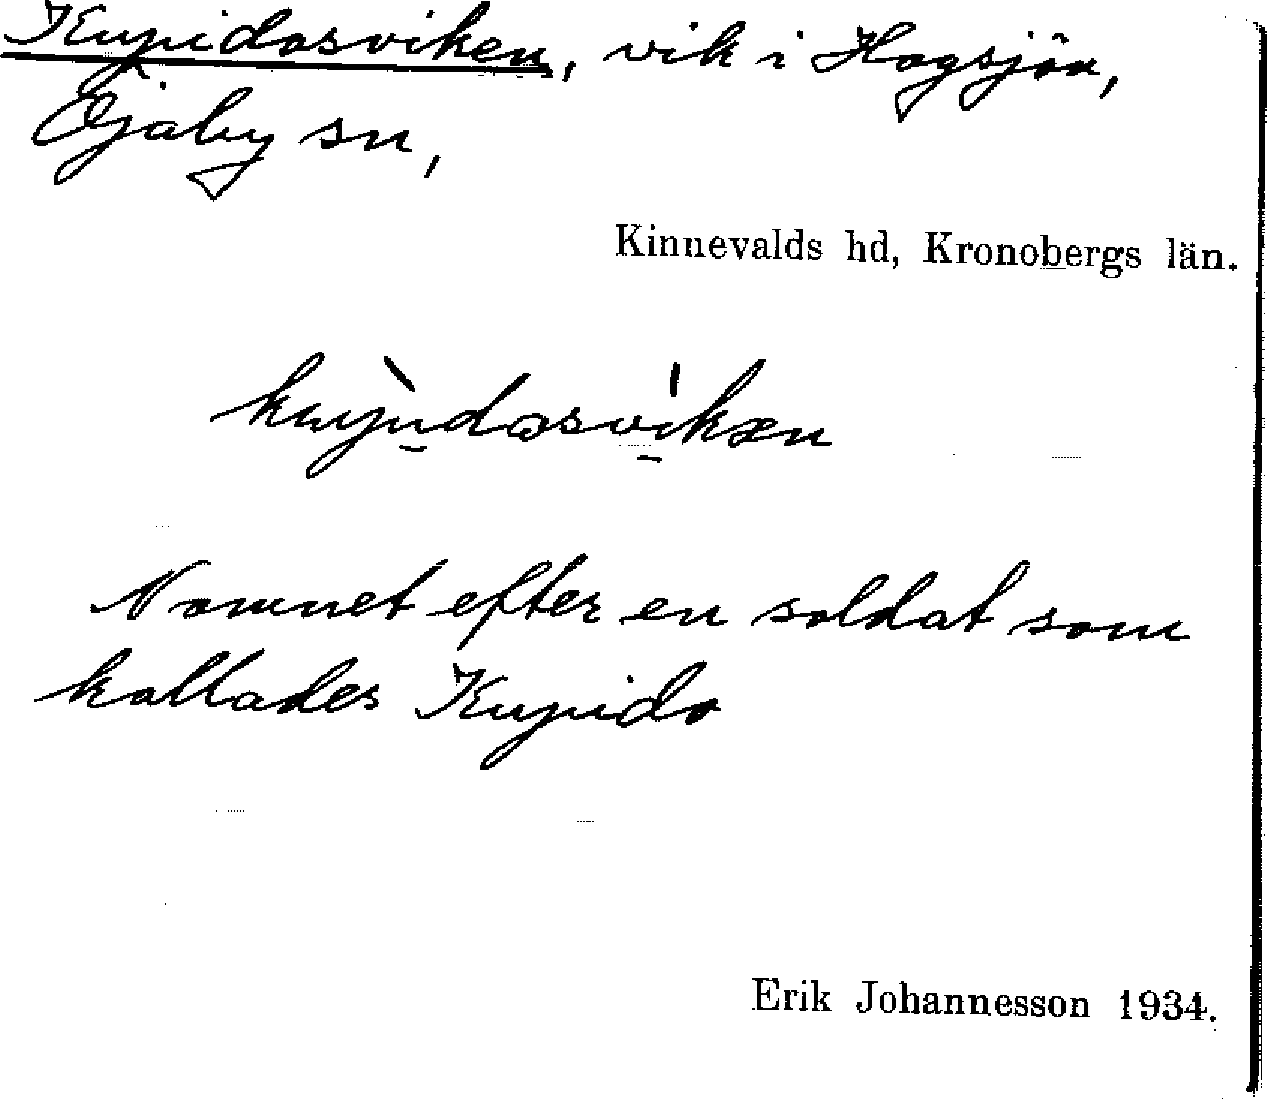 Kupidosviken, vik i Hagsjön,
Öjaby sn,
Kinnevalds hd, Kronobergs län.
kupìdosvíkæn
Namnet efter en soldat som
kallades Kupido
Erik Johannesson 1934.